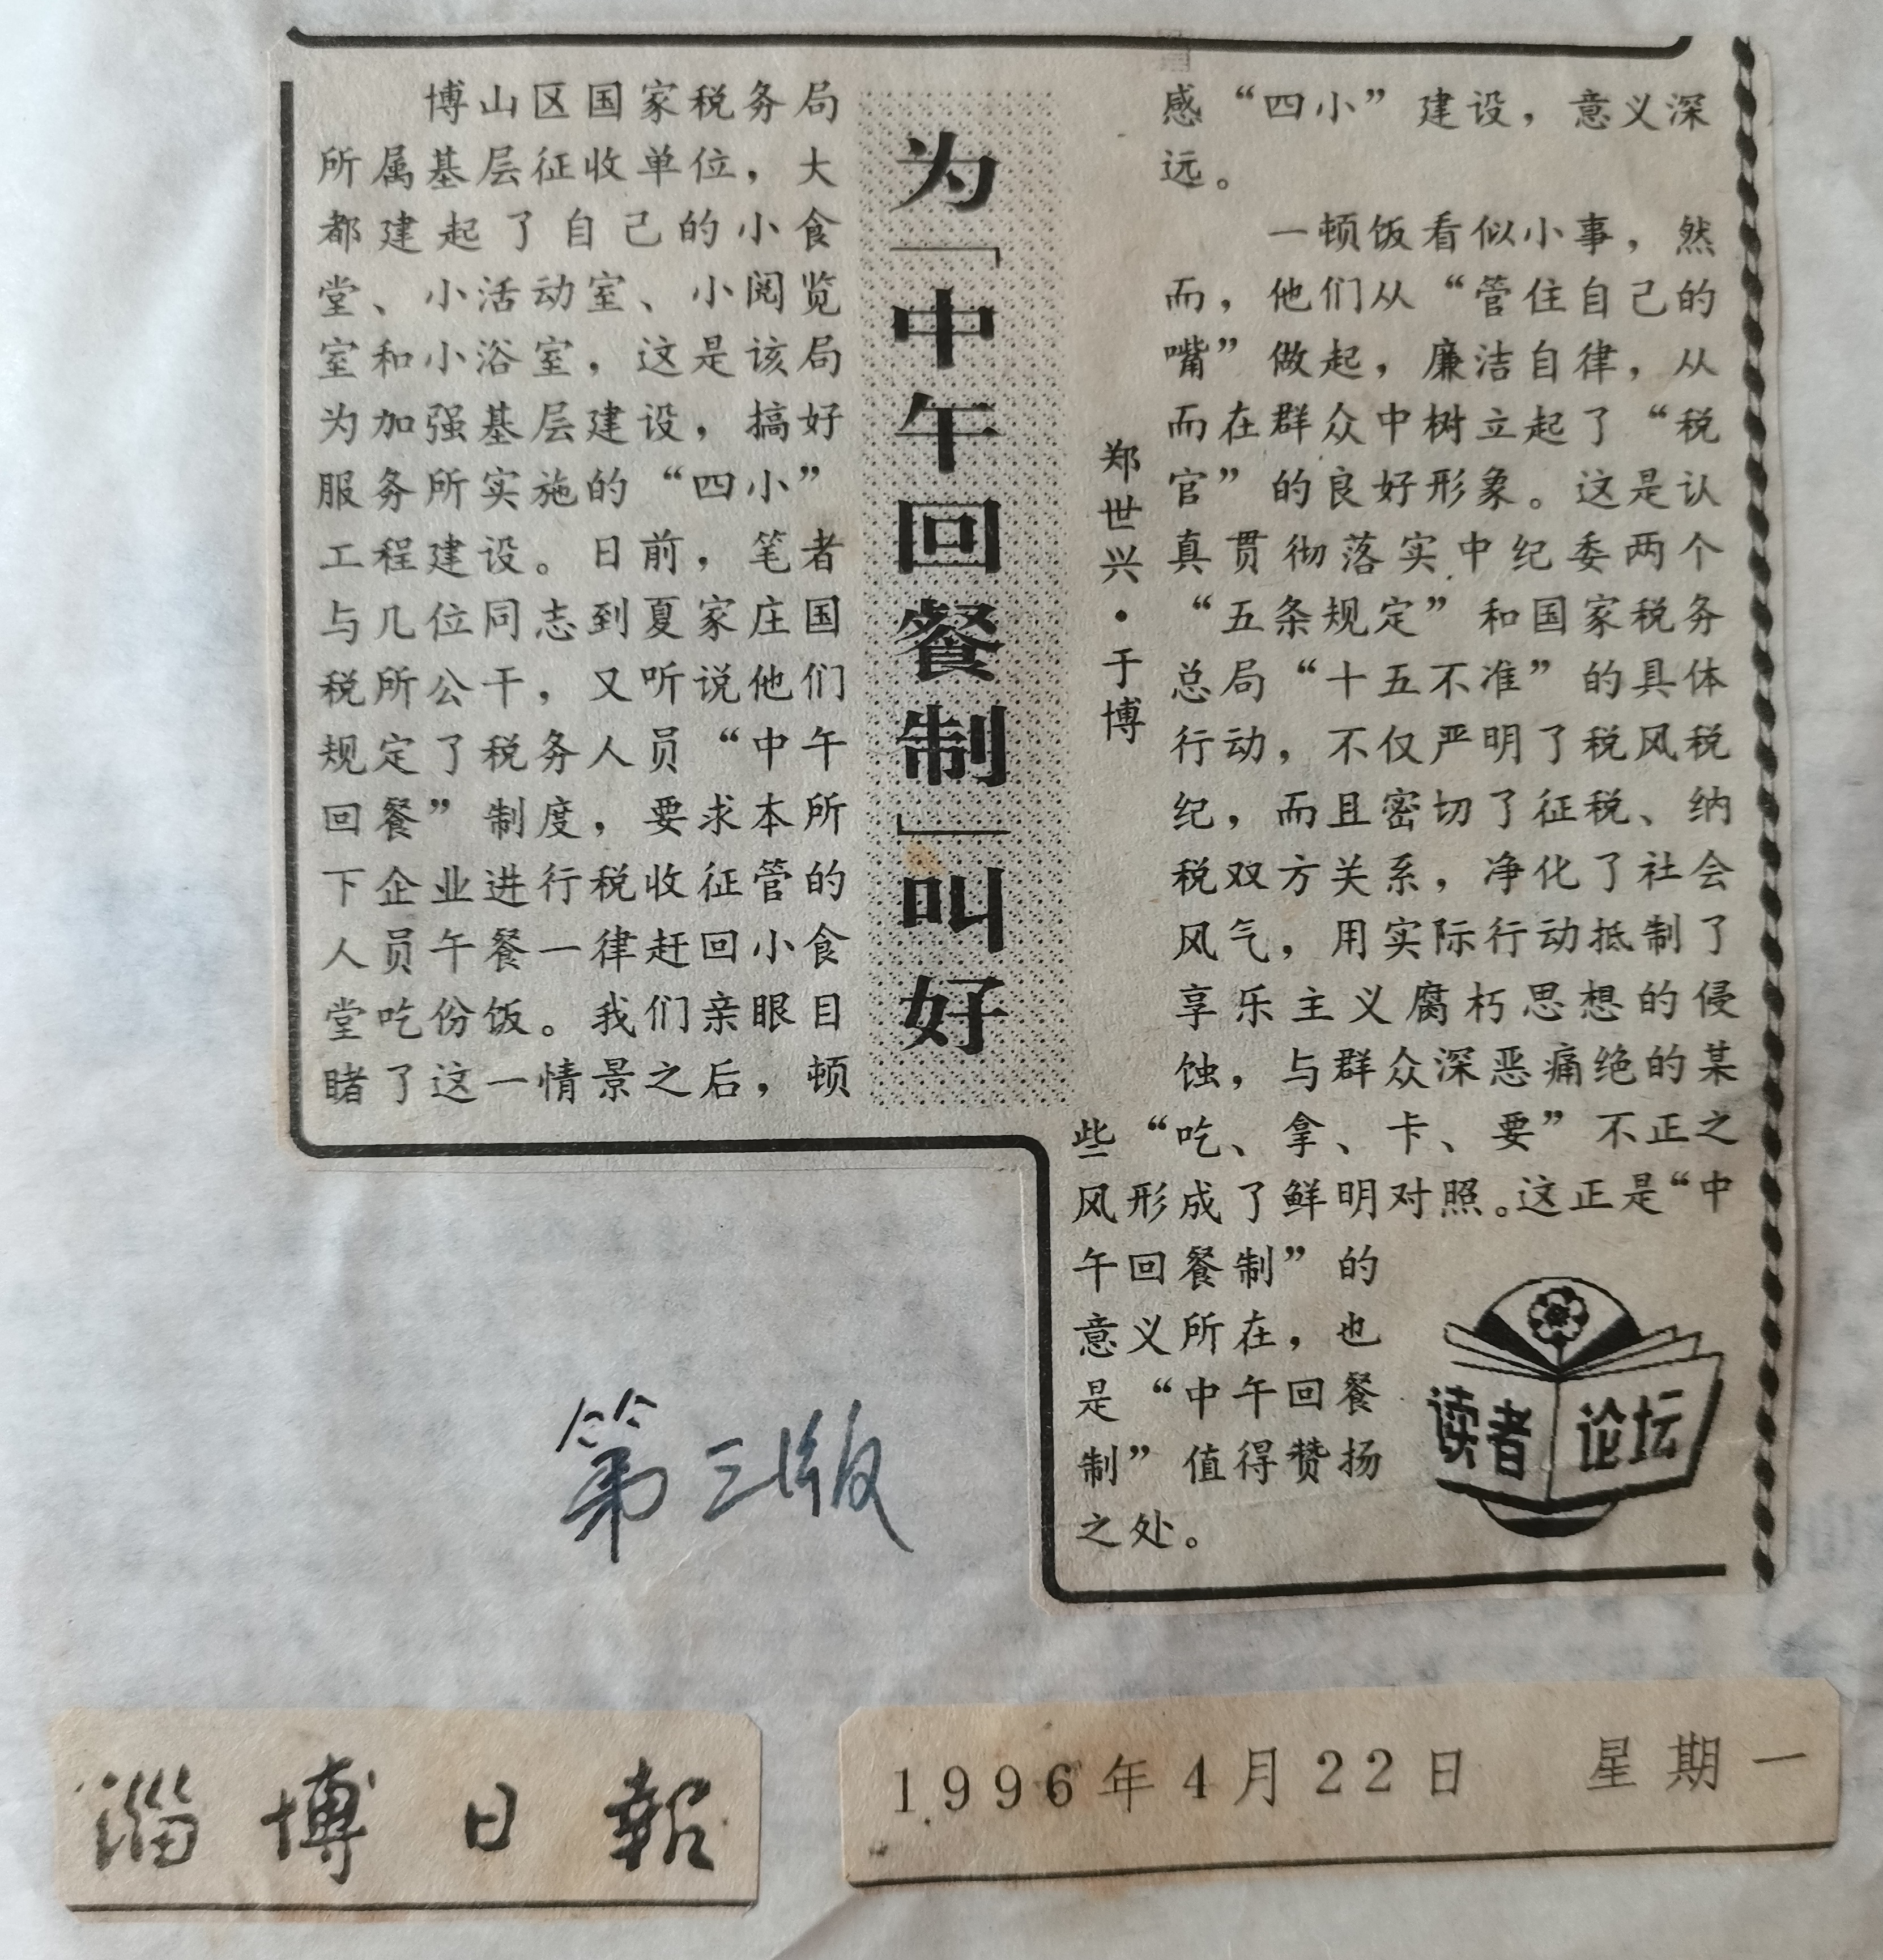 为「中午回餐制」叫好
郑世兴·于博
博山区国家税务局
所属基层征收单位，大
都建起了自己的小食
堂、小活动室、小阅览
室和小浴室，这是该局
为加强基层建设，搞好
服务所实施的“四小”
工程建设。日前，笔者
与几位同志到夏家庄国
税所公干，又听说他们
规定了税务人员“中午
回餐”制度，要求本所
下企业进行税收征管的
人员午餐一律赶回小食
堂吃份饭。我们亲眼目
睹了这一情景之后，顿
感“四小”建设，意义深
远。
一顿饭看似小事，然
而，他们从“管住自己的
嘴”做起，廉洁自律，从
而在群众中树立起了“税
官”的良好形象。这是认
真贯彻落实中纪委两个
“五条规定”和国家税务
总局“十五不准”的具体
行动，不仅严明了税风税
纪，而且密切了征税、纳
税双方关系，净化了社会
风气，用实际行动抵制了
享乐主义腐朽思想的侵
蚀，与群众深恶痛绝的某
些“吃、拿、卡、要”不正之
风形成了鲜明对照。这正是“中
午回餐制”的
意义所在，也
是“中午回餐
制”值得赞扬
之处。
读者论坛
第三版
淄博日報
1996年4月22日 星期一